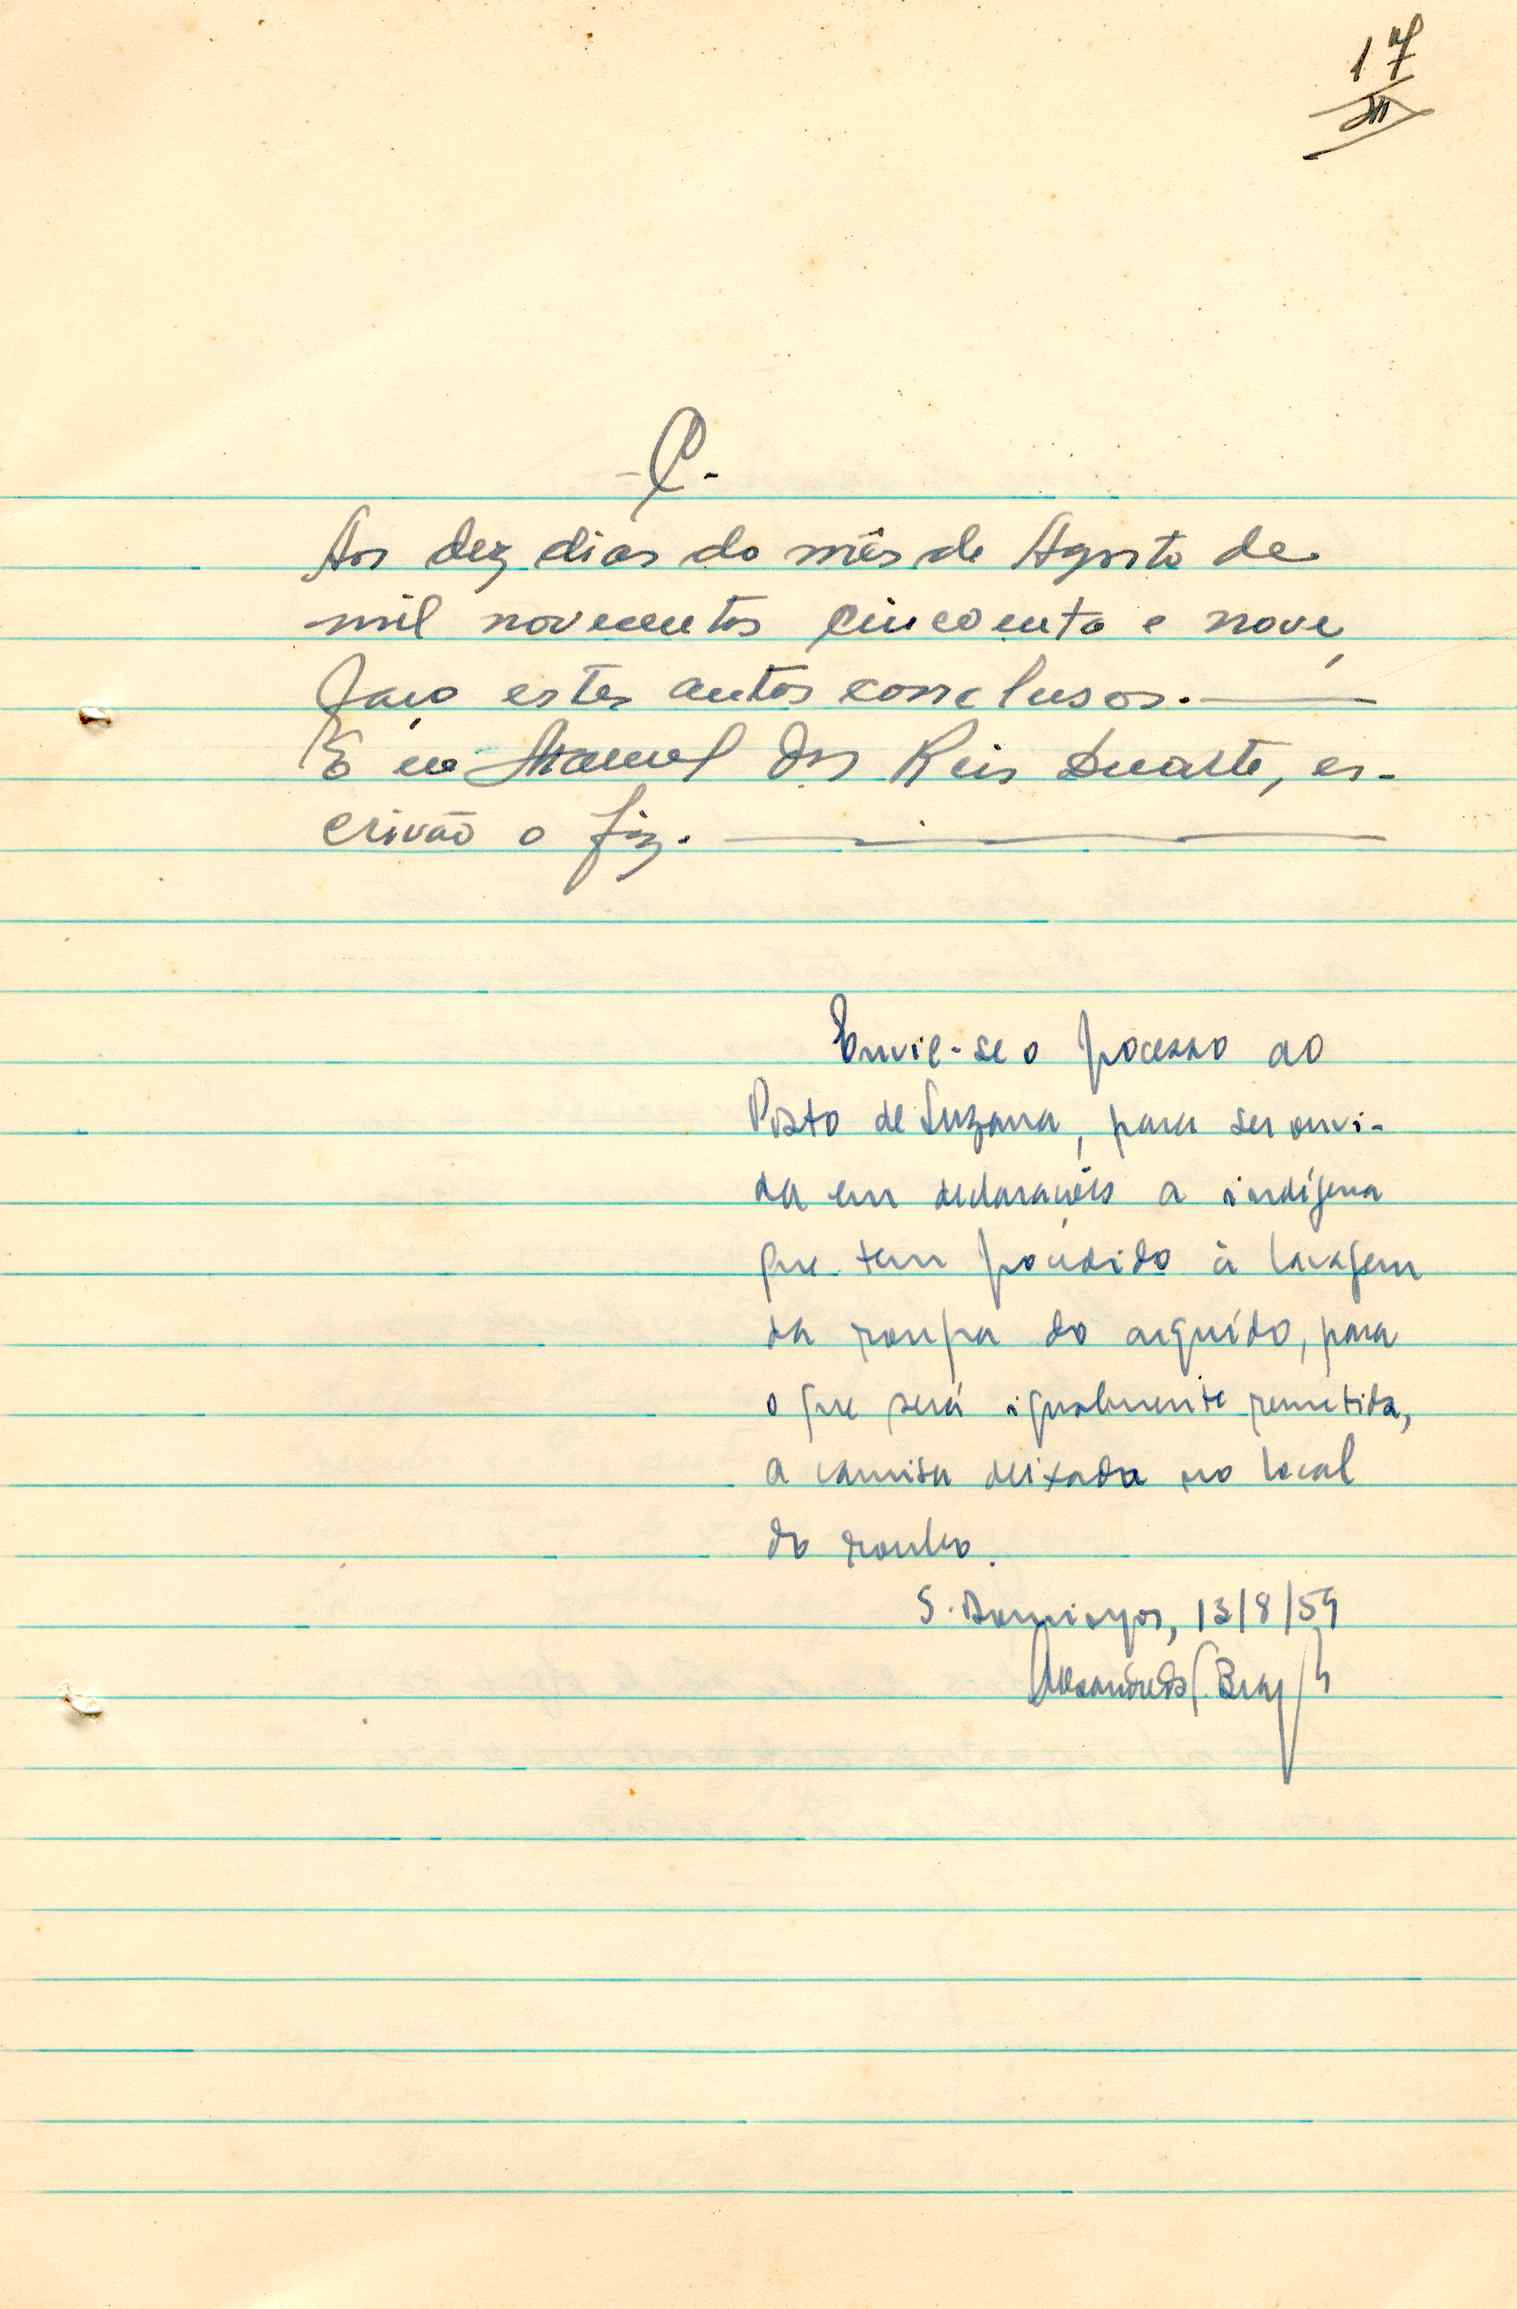 17
- C. -
Aos dez dias do mês de Agosto de
mil novecentos cincoenta e nove,
faço estes autos conclusos.
E eu Manuel dos Reis Duarte, es-
crivão o fiz.
Envie-se o processo ao
Posto de Suzana, para ser ouvi-
da em declarações a indígena
que tem procedido à lavagem
da roupa do arguido, para
o que será igualmente remetida,
a camisa deixada no local
do roubo.
S. Domingos, 13/8/59